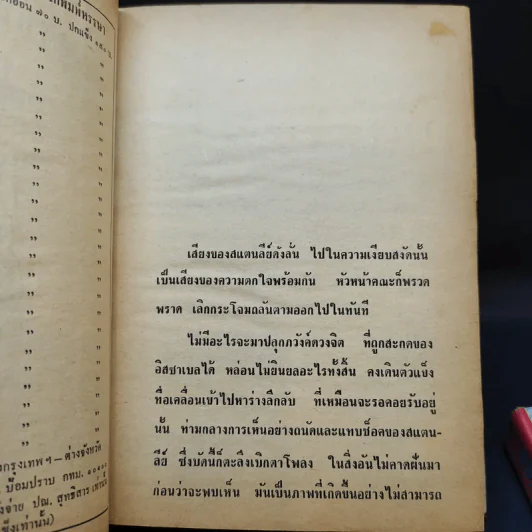 พิมพ์บรรณา
อ่อน ๗๐ บ. ปกแข็ง
"
"
"
"
"
"
"
"
"
"
"
"
"
"
กรุงเทพฯ – ต่างจังหวัด
ป้อมปราบ กทม. ๑๐๑๐๐
งจ่าย ปณ. สุทธิสาร เท่านั้น
ข็งเท่านั้น)
เสียงของสแตนลีย์ดังลั่น ไปในความเงียบสงัดนั้น
เป็นเสียงของความตกใจพร้อมกัน หัวหน้าคณะก็พรวด
พราด เลิกกระโจมถลันตามออกไปในทันที
ไม่มีอะไรจะมาปลุกภวังค์ดวงจิต ที่ถูกสะกดของ
อิสซาเบลได้ หล่อนไม่ยินยลอะไรทั้งสิ้น คงเดินตัวแข็ง
ทื่อเคลื่อนเข้าไปหาร่างลึกลับ ที่เหมือนจะรอคอยรับอยู่
นั้น ท่ามกลางการเห็นอย่างถนัดและแทบช็อคของสแตน-
ลีย์ ซึ่งบัดนี้ก็ตะลึงเบิกตาโพลง ในสิ่งอันไม่คาดฝันมา
ก่อนว่าจะพบเห็น มันเป็นภาพที่เกิดขึ้นอย่างไม่สามารถ